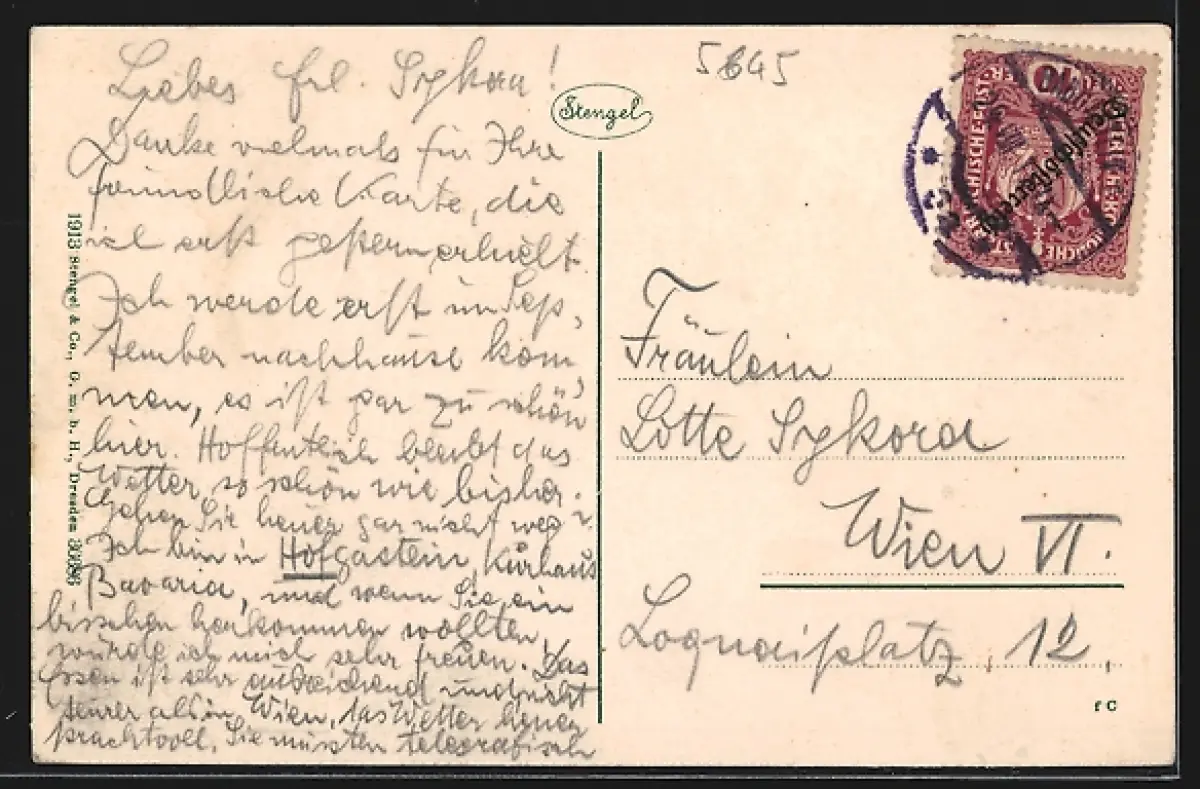 5645
Stengel
Liebes Frl. Sykora!
Danke vielmals für Ihre
freundliche Karte, die
ich erst gestern erhielt.
Ich werde erst im Sep-
tember nachhause kom-
men, es ist gar zu schön
hier. Hoffentlich bleibt das
Wetter so schön wie bisher.
Gehen Sie heuer gar nicht weg?
Ich bin in Hofgastein, Kurhaus
Bavaria, und wenn Sie ein
bisschen herkommen wollten,
würde ich mich sehr freuen. Das
Essen ist sehr ausreichend und nicht
teurer als in Wien, das Wetter heuer
prachtvoll. Sie müssten telegrafisch
1913 Stengel & Co., G. m. b. H., Dresden
Fräulein
Lotte Sykora
Wien VI.
Loquaiplatz 12,
f C
40
Deutschösterreich